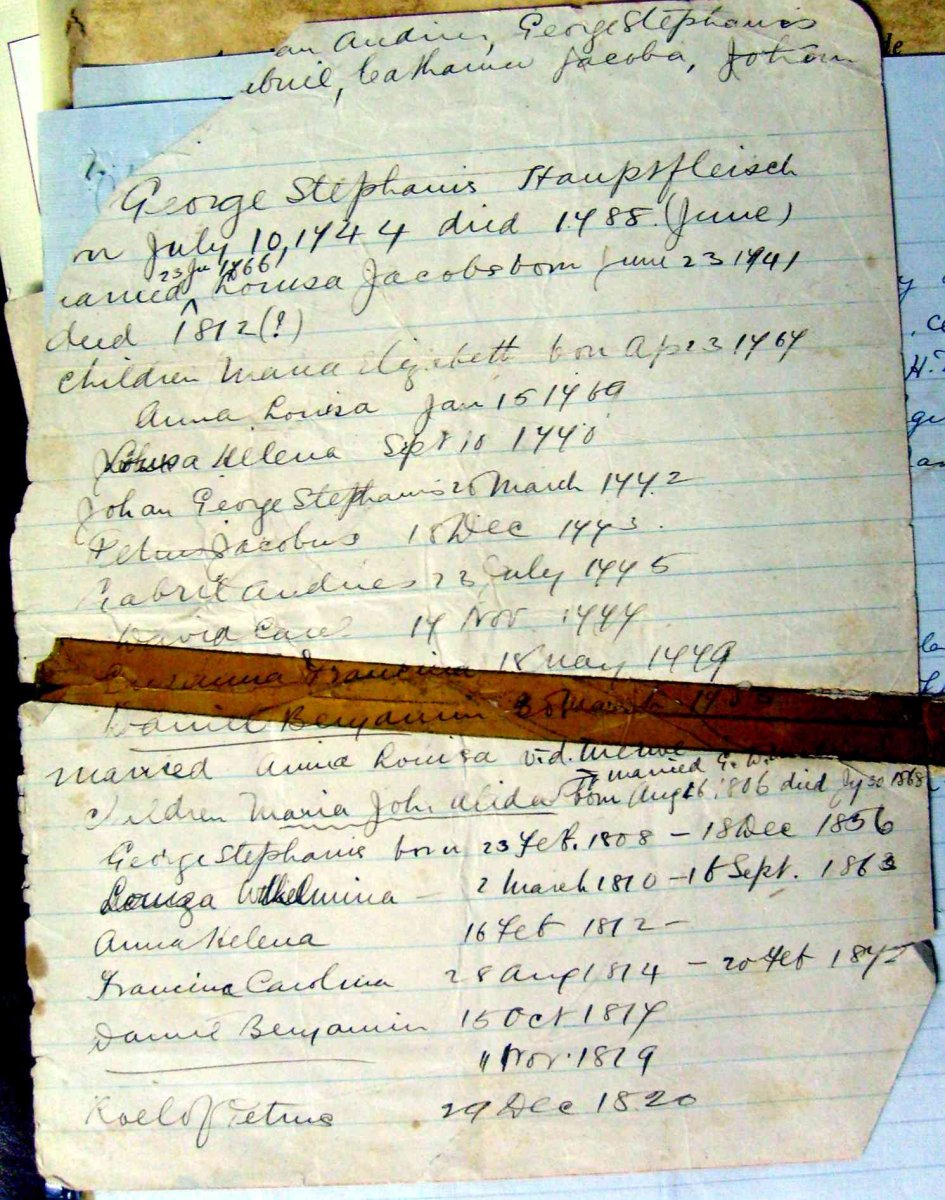 an Andries, George Stephanis
briel, Catharina Jacoba, Johan
George Stephanis Hauptfleisch
rn July 10, 1744 died 1788 (June)
23 Ju 1766
arried Louisa Jacobs born June 23 1741
died 1812 (?)
Children Maria Elizabeth born Ap 23 1767
Anna Louisa Jan 15 1769
Louisa Helena Sept 10 1770
Johan George Stephanis 20 March 1772
Petrus Jacobus 18 Dec 1773
Gabriel Andries 23 July 1775
David Carel 17 Nov 1777
Susanna Francina 18 May 1779
Daniel Benjamin March
married Anna Louisa v.d. Merwe
married G. W.
Children Maria Joh. Alida born Aug 26 1806 died Jy 30 1868
George Stephanis born 23 Feb. 1808 – 18 Dec 1856
Louiza Wilhelmina – 2 March 1810 – 16 Sept. 1863
Anna Helena 16 Feb 1812 –
Francina Carolina 28 Aug 1814 – 20 Feb 1872
Daniel Benjamin 15 Oct 1817
" Nov. 1819
Roelof Petrus 29 Dec 1820